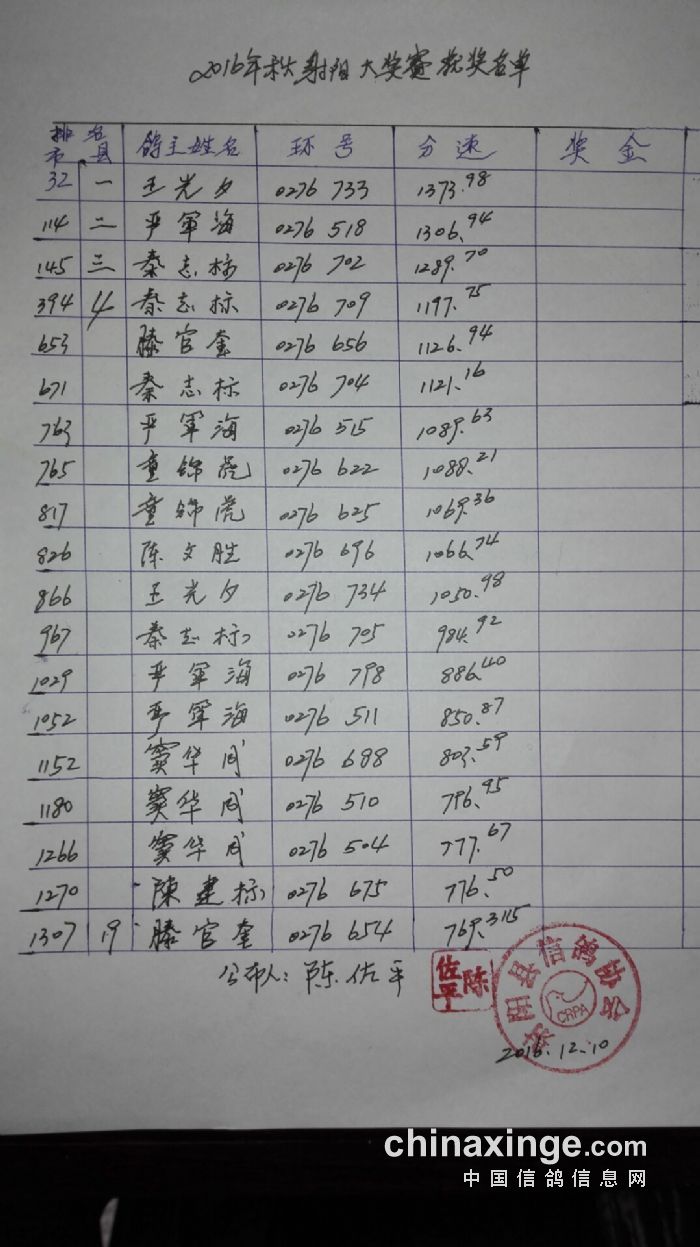 2016年秋射阳大奖赛获奖名单
排名 鸽主姓名 环号 分速 奖金
市 县
32 一 王光夕 0276 733 1373.98
114 二 严军海 0276 518 1306.94
145 三 秦志标 0276 702 1289.70
394 4 秦志标 0276 709 1197.75
653 滕官奎 0276 656 1126.94
671 秦志标 0276 704 1121.16
763 严军海 0276 515 1089.63
765 童锦虎 0276 622 1088.21
817 童锦虎 0276 625 1069.36
826 陈文胜 0276 696 1066.74
866 王光夕 0276 734 1050.98
967 秦志标 0276 705 984.92
1029 严军海 0276 798 886.40
1052 严军海 0276 511 850.87
1152 窦华成 0276 688 803.59
1180 窦华成 0276 510 796.95
1266 窦华成 0276 504 777.67
1270 陳建标 0276 675 776.50
1307 19 滕官奎 0276 654 769.3115
公布人：陈佐平
陈佐平
射阳县信鸽协会
CRPA
2016.12.10
chinaxinge.com
中国信鸽信息网